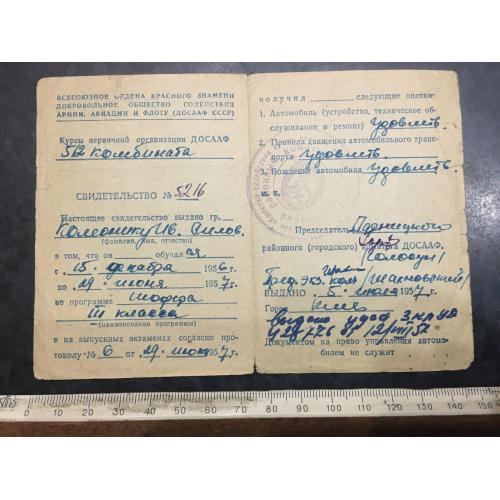 ВСЕСОЮЗНОЕ ОРДЕНА КРАСНОГО ЗНАМЕНИ
ДОБРОВОЛЬНОЕ ОБЩЕСТВО СОДЕЙСТВИЯ
АРМИИ, АВИАЦИИ И ФЛОТУ (ДОСААФ СССР)
Курсы первичной организации ДОСААФ
512 комбината
СВИДЕТЕЛЬСТВО № 5216
Настоящее свидетельство выдано гр.
(фамилия, имя, отчество)
в том, что он обучался
с 15 декабря 1956 г.
по 29 июня 1957 г.
по программе шофера
III класса
(наименование программы)
и на выпускных экзаменах согласно про-
токолу № 6 от 29 июня 1957 г.
получил следующие оценки:
1. Автомобиль (устройство, техническое об-
служивание и ремонт) удовлетв.
2. Правила движения автомобильного транс-
порта удовлетв.
3. Вождение автомобиля удовлетв.
Председатель
районного (городского) комитета ДОСААФ.
Пред. Экз. ком
ВЫДАНО 5 июля 1957 г.
Город Киев
выдано удов. 3 кл
Документом на право управления автомо-
билем не служит
0 10 20 30 40 50 60 70 80 90 100 110 120 130 140 150